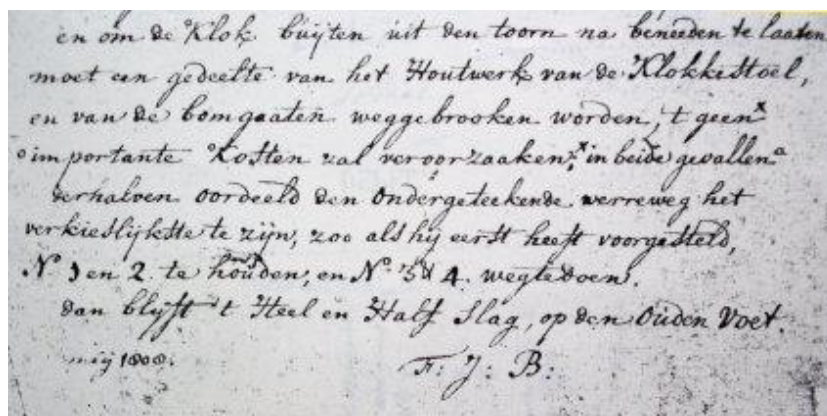 en om de Klok buijten uit den toorn na beneeden te laaten
moet een gedeelte van het Houtwerk van de Klokkestoel,
en van de bomgaaten weggebrooken worden, 't geen x
o importante Kosten zal veroorzaaken x in beide gevallen o
derhalven oordeeld den ondergeteekende verreweg het
verkieslijkste te zijn, zoo als hij eerst heeft voorgesteld,
N. 1 en 2. te houden, en N. 3 & 4. wegtedoen.
dan blyft 't Heel en Half Slag, op den Ouden Voet.
meij 1808. F: J: B: